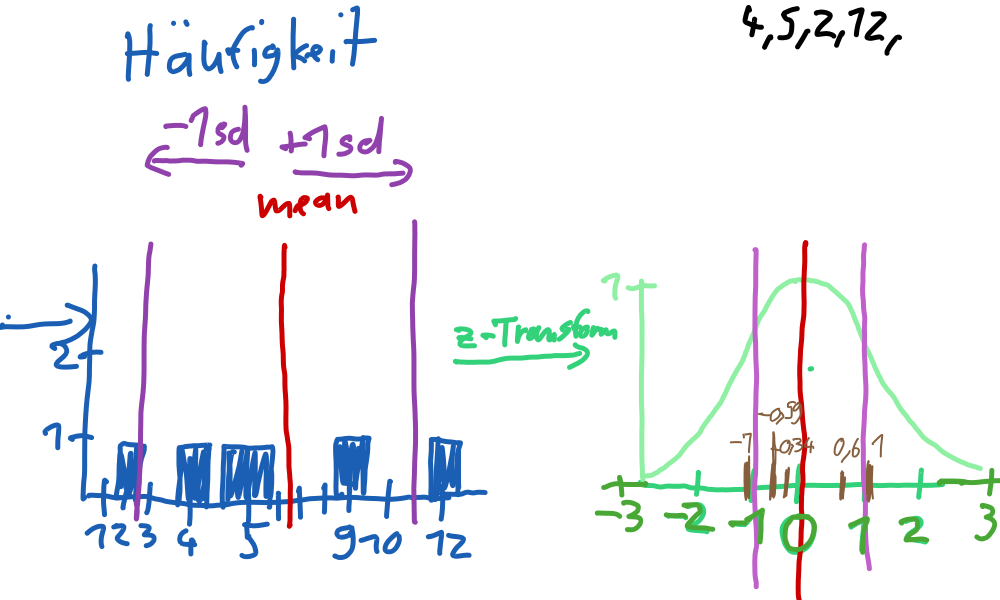 4,5,2,12,
Häufigkeit
-1sd +1sd
mean
2
1
1 2 3 4 5 9 10 12
z-Transform
1
-0,59
-1 -0,34 0,6 1
-3 -2 -1 0 1 2 3